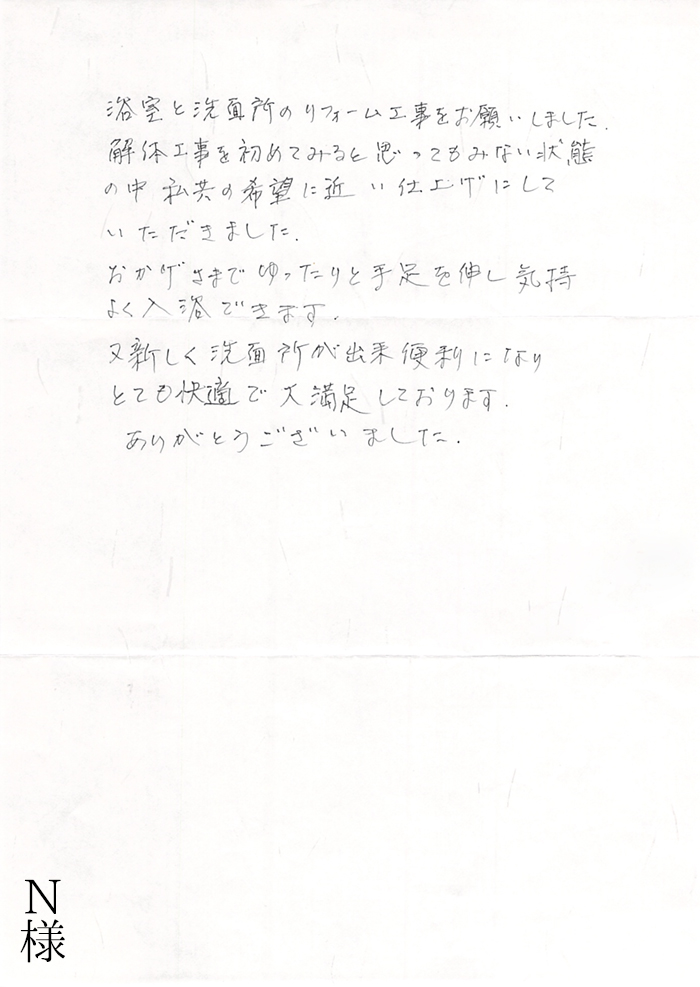 浴室と洗面所のリフォーム工事をお願いしました.
解体工事を初めてみると思ってもみない状態
の中 私共の希望に近い仕上げにして
いただきました.
おかげさまでゆったりと手足を伸し気持
よく入浴できます.
又新しく洗面所が出来便利になり
とても快適で大満足しております.
ありがとうございました.
N
様